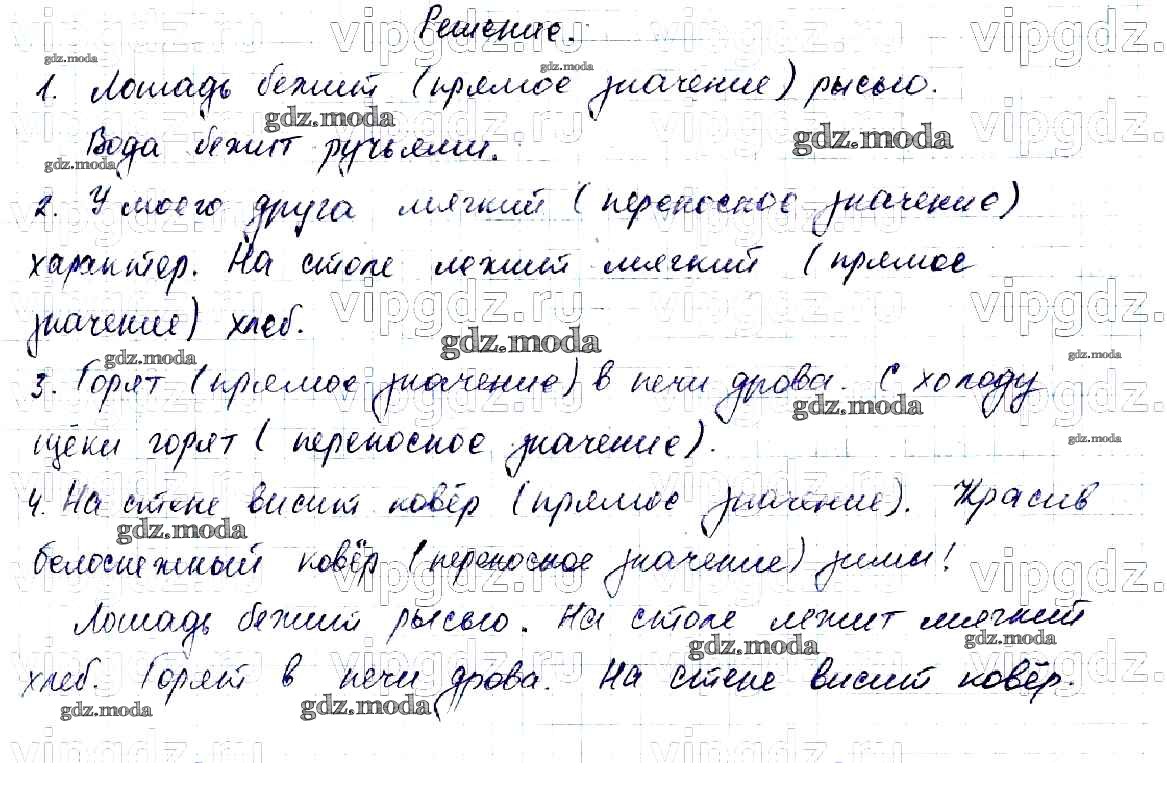 Решение.
1. Лошадь бежит (прямое значение) рысью.
Вода бежит ручьями.
2. У моего друга мягкий (переносное значение)
характер. На столе лежит мягкий (прямое
значение) хлеб.
3. Горят (прямое значение) в печи дрова. С холоду
щёки горят (переносное значение).
4. На стене висит ковёр (прямое значение). Красив
белоснежный ковёр (переносное значение) зимы!
Лошадь бежит рысью. На столе лежит мягкий
хлеб. Горят в печи дрова. На стене висит ковёр.
vipgdz.ru
gdz.moda